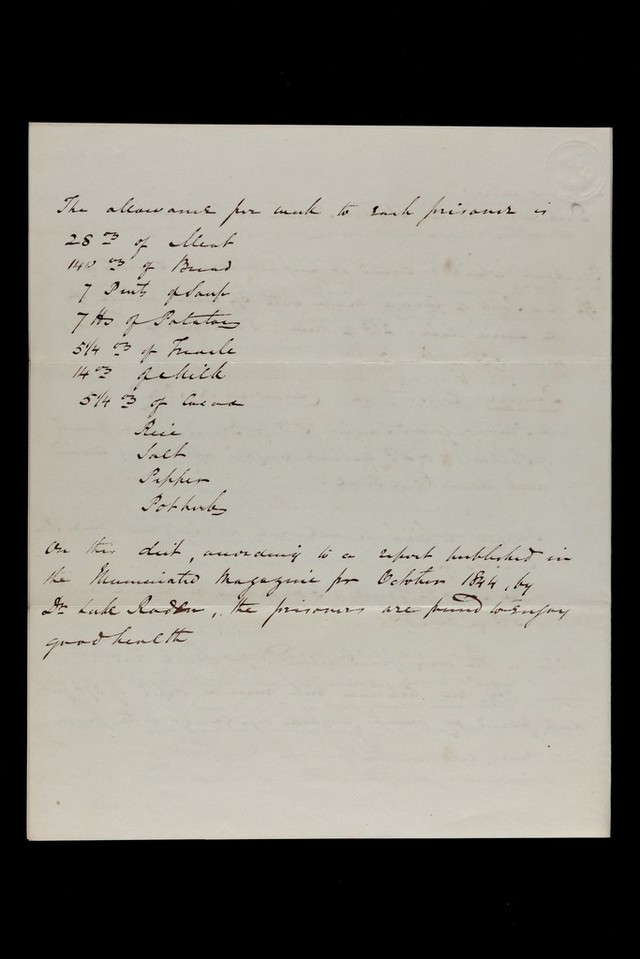 The allowance per week to each prisoner is
28 oz of Meat
140 oz of Bread
7 Pints of Soup
7 lbs of Potatoes
5 1/4 oz of Treacle
14 oz of Milk
5 1/4 oz of Cocoa
Rice
Salt
Pepper
Potherbs
On this diet, according to a report published in
the Illuminated Magazine for October 1844, by
Dr Luke, the prisoners are found to enjoy
good health